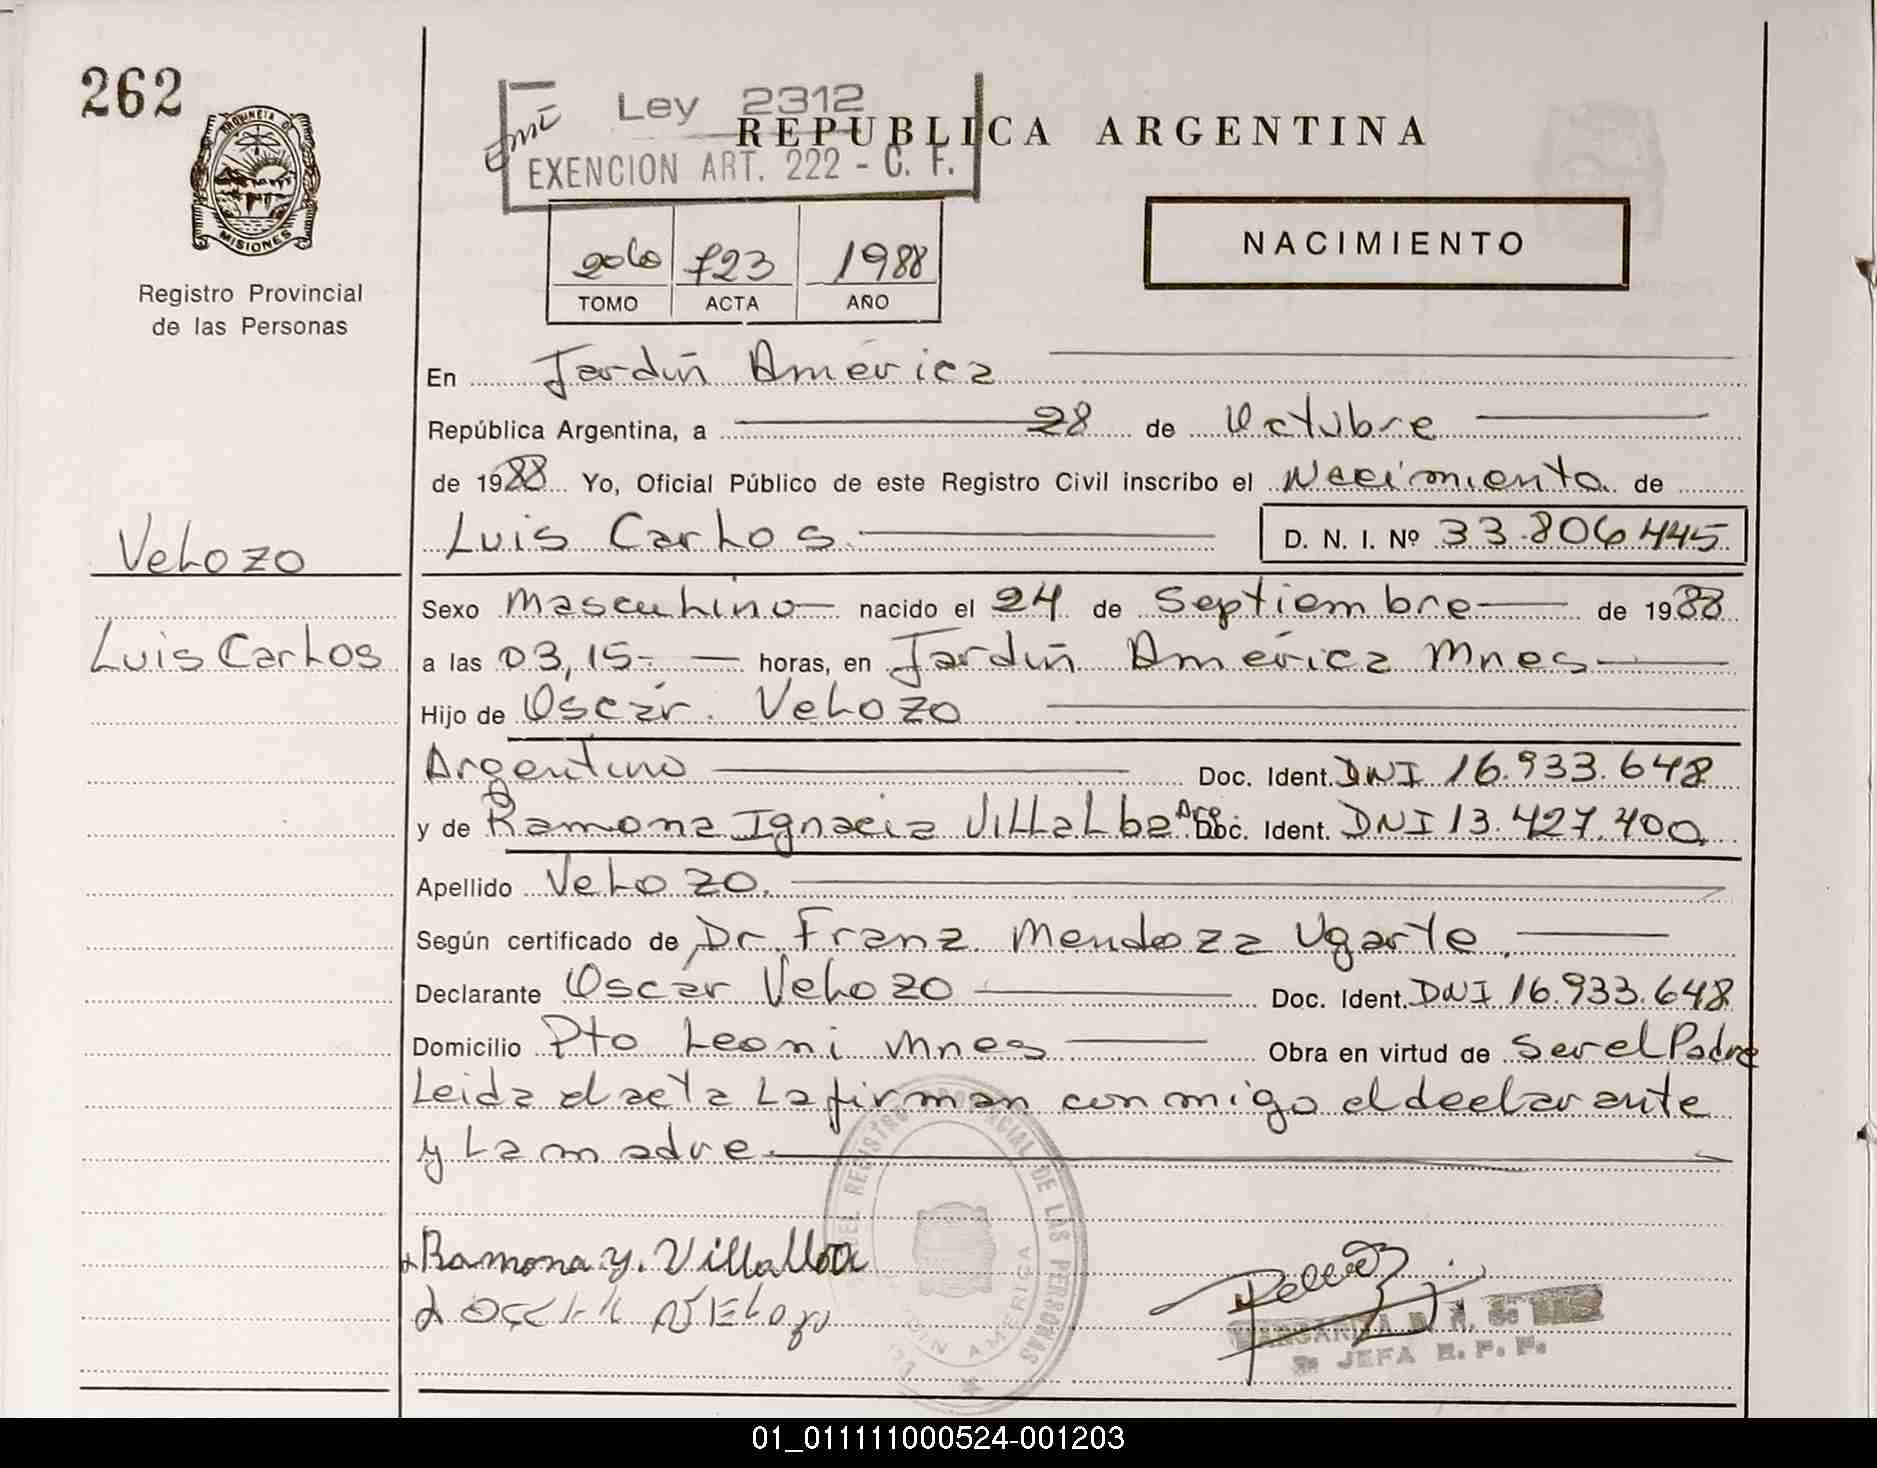 262
PROVINCIA DE
MISIONES
Registro Provincial
de las Personas
Ley 2312
EXENCION ART. 222 - C. F.
REPUBLICA ARGENTINA
NACIMIENTO
723 1988
TOMO ACTA AÑO
En Jardín América
República Argentina, a 28 de Octubre
de 1988 Yo, Oficial Público de este Registro Civil inscribo el Nacimiento de
Velozo
Luis Carlos D. N. I. Nº 33.806.445
Sexo Masculino nacido el 24 de Septiembre de 1988
Luis Carlos
a las 03,15 horas, en Jardín América Mnes
Hijo de Oscar Velozo
Argentino Doc. Ident. DNI 16.933.648
y de Ramona Ignacia Villalba Arg. Doc. Ident. DNI 13.427.400
Apellido Velozo.
Según certificado de Dr. Franz Mendoza Ugarte.
Declarante Oscar Velozo Doc. Ident. DNI 16.933.648
Domicilio Pto Leoni Mnes Obra en virtud de Ser el Padre
Leida el acta La firman conmigo el declarante
y La madre.
DEL REGISTRO PROVINCIAL DE LAS PERSONAS
JARDIN AMERICA
Ramona Y. Villalba
OSCAR VELOZO
JEFA R. P. P.
01_011111000524-001203